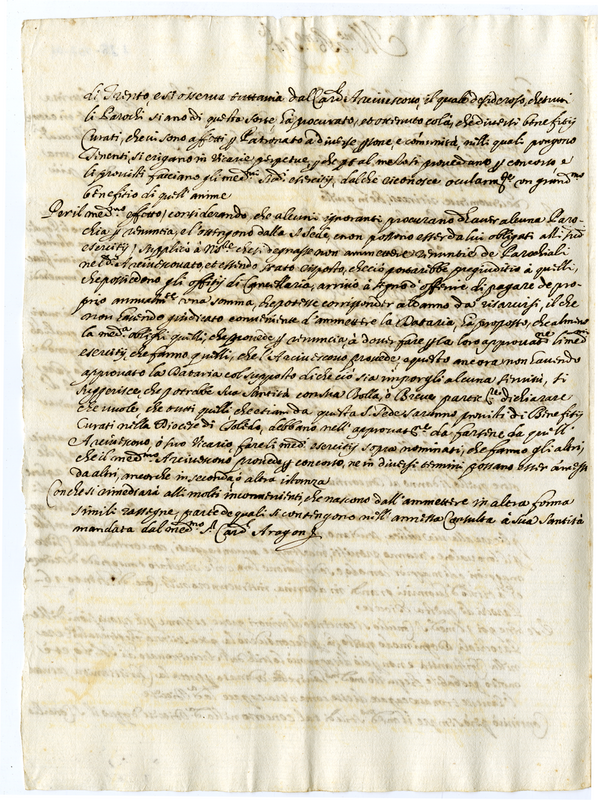 di Trento, e si osserva tuttavia dal Card.l Arcivescovo, il quale desideroso, che tutti
li Parochi siano di questa sorte hà procurato, et ottenuto colà, che diversi benefitij
Curati, che vi sono affetti p Patronato a diverse p̃sone, e cõmunità, nelli quali pongono
Tenenti si erigano in Vicarie perpetue, e li
provisti facciano gli med.mi esercitij, dal che riconosce ocularm.te un grand.mo
beneficio di quell'anime
Per il med.mo effetto, considerando, che alcuni ignoranti procurano d'haver alcuna Paro-
chia p renuntia, e l'ottengono dalla S. Sede, e non possono esser da lui obligati alli sud.i
esercitij, supplicò à N. che si degnasse non ammettere renuntie de Parochiali
nel d.o Arcivescovato, et essendo stato risposto, che ciò potrebbe pregiuditio à quelli,
che possiedono gli offitij di Cancellaria, arrivò à segno d'offerire di pagare de pro-
prio annualm.te una somma, che potesse corrisponder al danno da risarcirsi, il che
non havendo giudicato conveniente d'ammettere la Dataria, hà proposto, che almeno
la med.a oblighi quelli, che provede p renuncia, à dover fare p la loro approvat.ne li med.mi
esercitij, che fanno quelli, che l'Arcivescovo provede, e questo ancora non havendo
approvato la Dataria col supposto di che ciò sia imporgli alcuna servitù, si
suggerisce, che potrebbe Sua Santità con una Bolla, ò Breve dichiarare
che vuole, che tutti quelli che etiam da questa S. Sede saranno provisti di Benefitij
Curati nella Diocese di Toledo, debbano nell'approvat.ne da farsene da quell'
Arcivescovo, ò suo Vicario fare li med.i esercitij sopra nominati, che fanno gli altri,
che il med.mo Arcivescovo provede p concorso, ne in diversi termini possano esser ammessi
da altri, ancorche in seconda ò altra istanza
Con che si rimediarà alli molti inconvenienti, che nascono dall'ammettere in altra forma
simili rassegne, parte de quali si contengono nell'annessa Consulta à Sua Santità
mandata dal med.mo S.r Card. Aragona